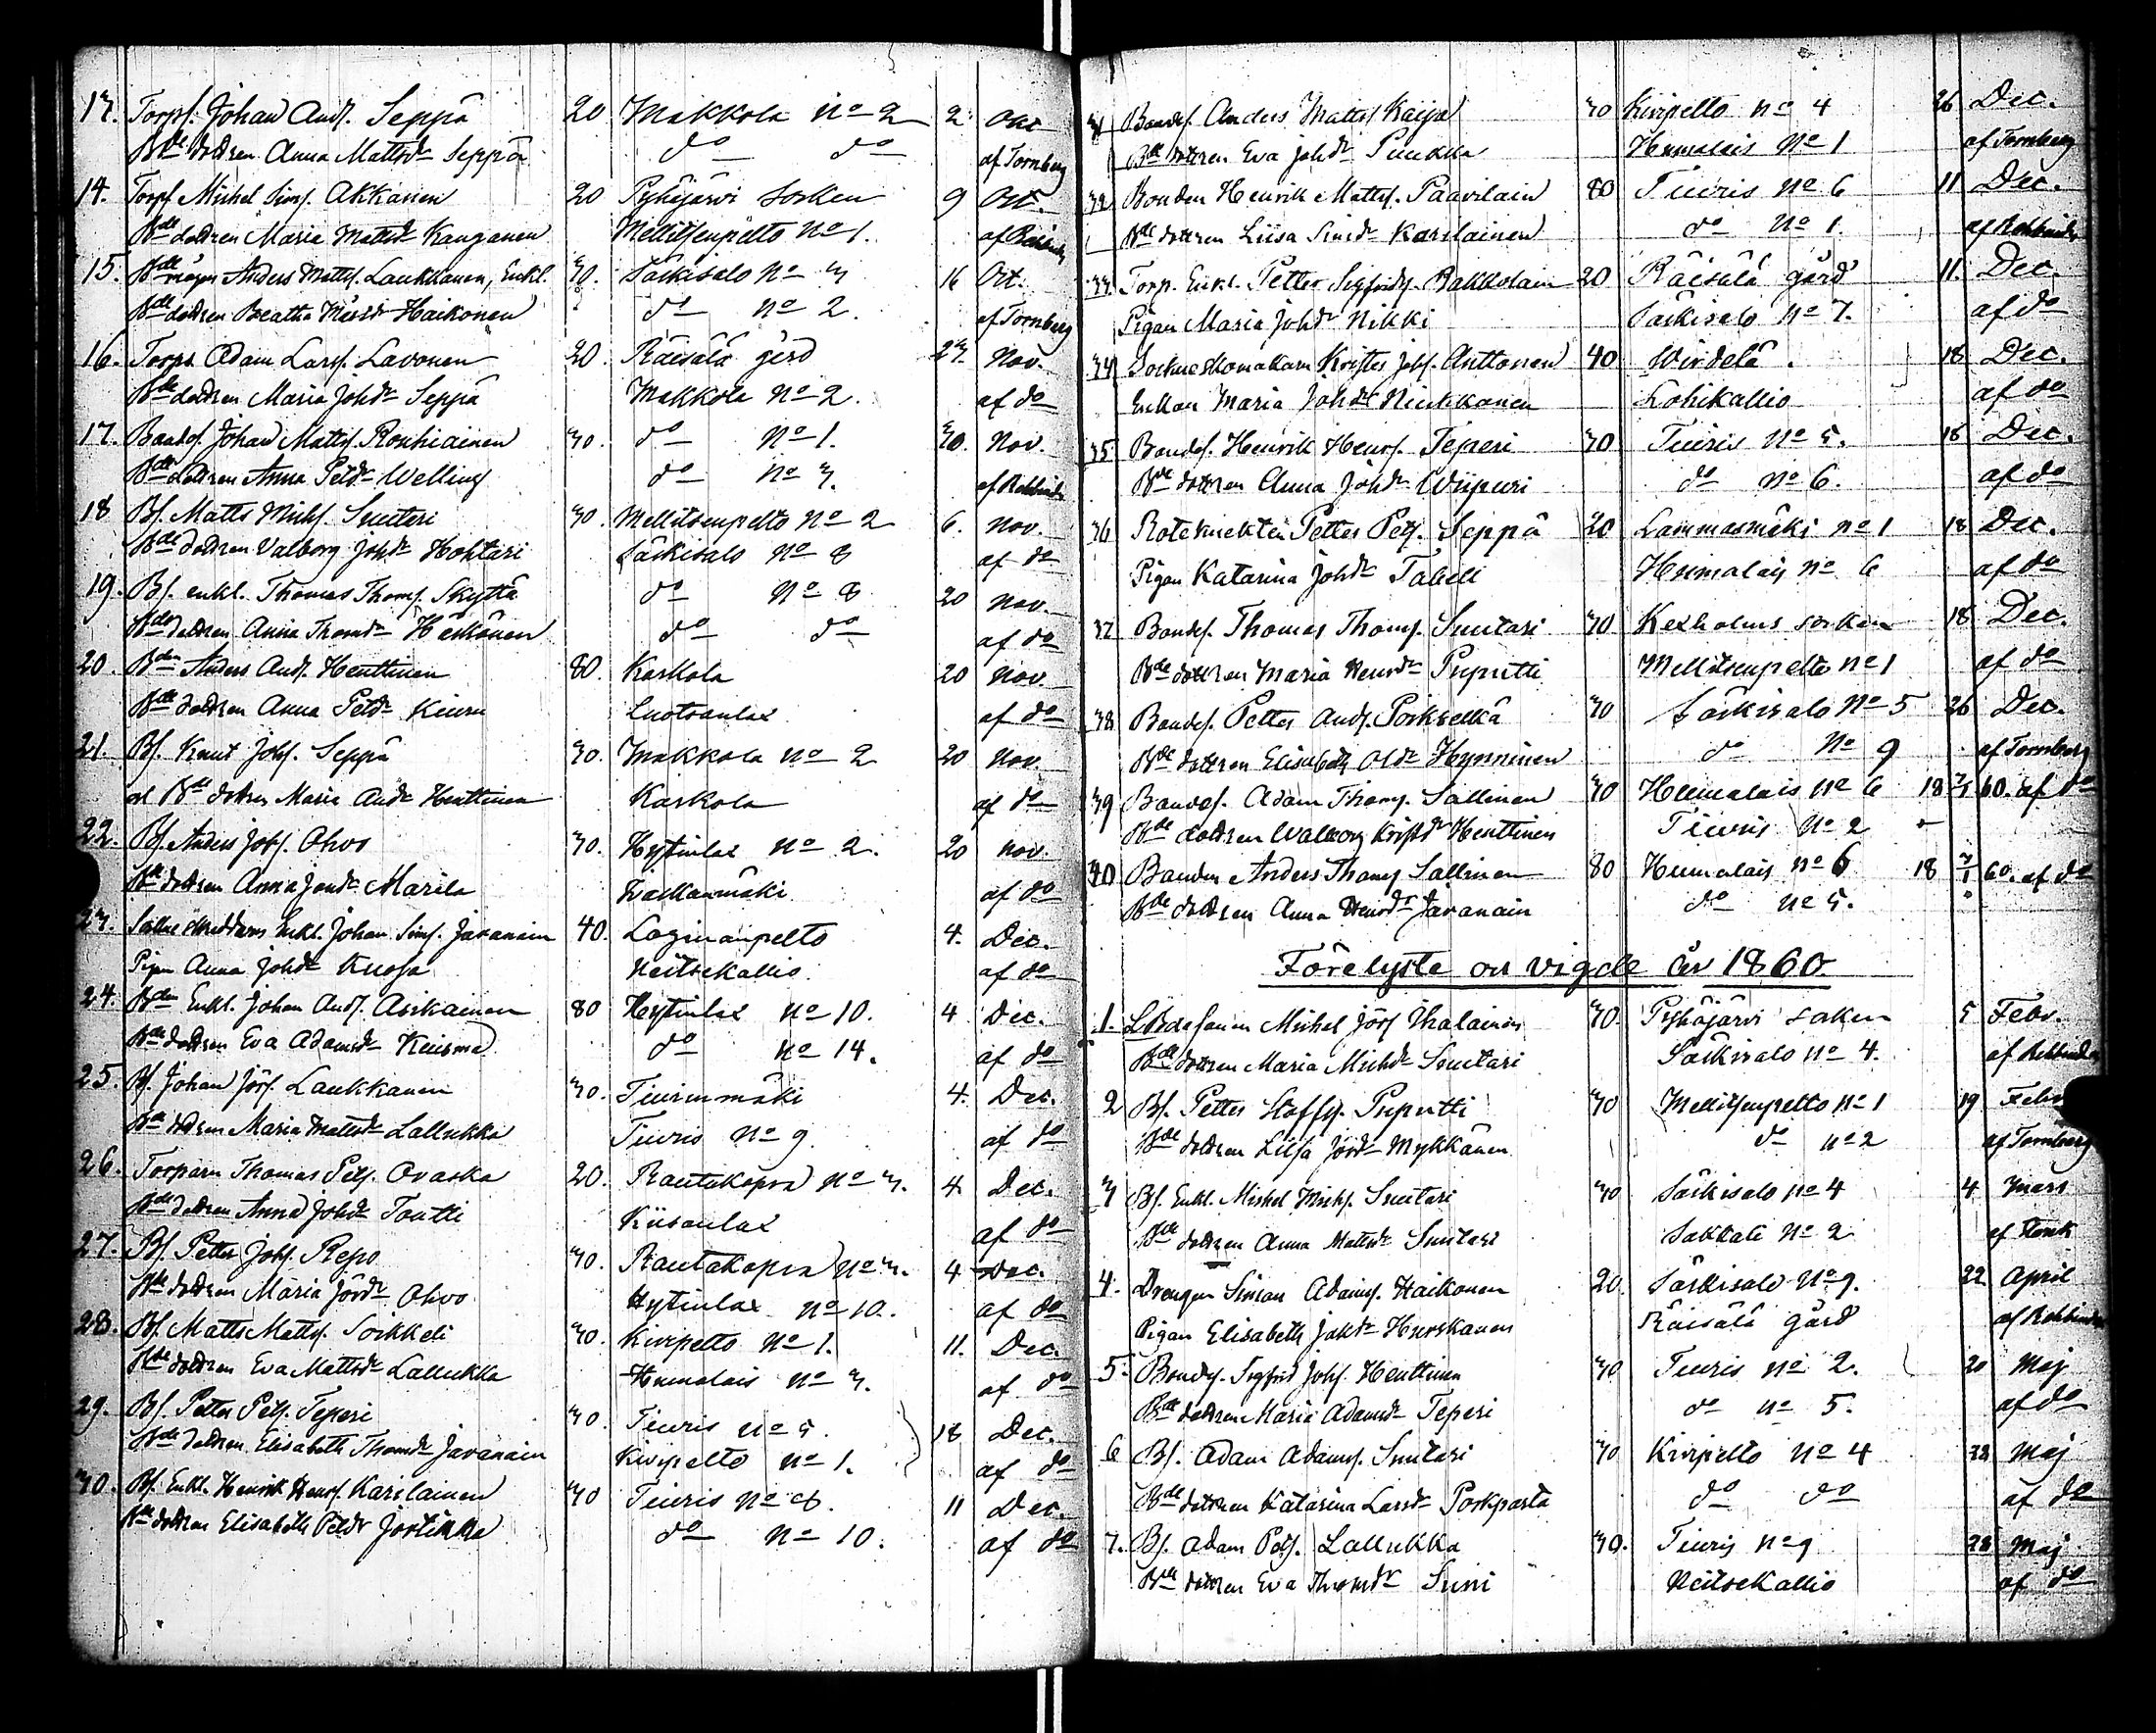 13. Torpf. Johan Andf. Seppä 20 Makkola No 2 2 Okt
Bde dottren Anna Mattsdr Seppä do do af Tornberg
14. Torpf Michel Simf. Akkanen 20 Pyhäjärvi Socken 9 Oct.
Bde dottren Maria Mattsdr Kauganen Mellitsenpelto No 1.
15. Bde mågen Anders Mattsf. Laukkanen, Enkl. 30. Särkisalo No 3 16 Oct.
Bde dottren Beatha Haikonen do No 2. af Tornberg
16. Torp. Adam Larsf. Lavonen 20. Räisälä gård 23. Nov.
Bde dottren Maria Johdr Seppä Makkola No 2. af do
17. Bondef. Johan Mattsf. Ronkiainen 30. do No 1. 30. Nov.
Bde dottren Anna Petdr Welling do No 3. af Rehbinder
18 Bf. Matts Michf. Suutari 30. Mellitsenpelto No 2 6. Nov.
Bde dottren Valborg Johdr Hohtari Särkisalo No 8 af do
19. Bf. enkl. Thomas Thomf. Skyttä do No 8 20 Nov.
Bde dottren Anna Thomdr Häikönen do do af do
20. Bden Anders Andf. Henttinen 80. Kaskola 20 Nov.
Bde dottren Anna Petdr Kiuru Luotsanlax af do
21. Bf. Knut Johf. Seppä 30. Makkola No 2 20 Nov.
Bde dottren Maria Andr Henttinen Kaskola af do
22. Bf. Anders Johf. Ohvo 30. Hytinlax No 2. 20 Nov.
Bde dottren Anna Marila af do
23. Enkl. Johan Simf. Javanain 40. Loginanpelto 4. Dec.
Pigan Anna Johdr Kuosa Neitsekallio af do
24. Bden Enkl. Johan Andf. Asikainen 80 Hytinlax No 10. 4 Dec.
Bde dottren Eva Adamsdr Kuisma do No 14. af do
25. Bf. Johan Jörf. Laukkanen 30. Tiurinmäki 4. Dec.
Bde dottren Maria Mattsdr Lallukka Tiuris No 9. af do
26. Torparn Thomas Petf. Ovaska 20. Rautakopra No 3. 4. Dec.
Bde dottren Anna Johdr Toutti Kiisanlax af do
27. Bf. Petter Johf. Repo 30. Rautakopra No 3. 4 Dec.
Bde dottren Maria Jördr Ohvo Hytinlax No 10. af do
28. Bf. Matts Mattsf. Soikkeli 30. Kivipelto No 1. 11. Dec.
Bde dottren Eva Mattsdr Lallukka Humalais No 3. af do
29. Bf. Petter Petf. Teperi 30. Tiuris No 5. 18 Dec.
Bde dottren Elisabeth Thomdr Javanain Kivipelto No 1. af do
30. Bf. Enkl. Henrik Henrf. Karilainen 30 Tiuris No 8. 11 Dec.
Bde dottren Elisabeth Petdr Jortikka do No 10. af do
31 Bondef. Anders Mattsf Kaija 30 Kivipelto No 4 26 Dec.
Bde dottren Eva Johdr Puukka Humalais No 1 af Tornberg
32 Bonden Henrik Mattsf. Paavilain 80 Tiuris No 6 11 Dec.
Bde dottren Liisa Simdr Karilainen do No 1. af Rehbinder
33 Torp. Enkl. Petter Sigfridsf. Pakkolain 20 Räisälä gård 11. Dec.
Pigan Maria Johdr Nikki Särkisalo No 7. af do
34 Sockneskomakarn Krister Johf. Anttonen 40 Wirdelä. 18 Dec.
Enkan Maria Johdr Niukkanen Lohikallio af do
35 Bondef. Henrik Henrf. Teperi 30 Tiuris No 5. 18 Dec.
Bde dottren Anna Johdr Wiipuri do No 6. af do
36 Roteknekten Petter Petf. Seppä 20 Lammasmäki No 1 18 Dec.
Pigan Katarina Johdr Tabell Humalais No 6 af do
37 Bondef. Thomas Thomf. Suutari 30 Kexholms Socken 18 Dec.
Bde dottren Maria Henrdr Puputti Mellitsenpelto No 1 af do
38 Bondef. Petter Andf. Porkselkä 30 Särkisalo No 5 26 Dec.
Bde dottren Elisabeth Hynninen do No 9 af Tornberg
39 Bondef. Adam Thomf. Sallinen 30 Humalais No 6 18 3/1 60. af do
Bde dottren Walborg Kristdr Henttinen Tiuris No 2
40 Bonden Anders Thomf. Sallinen 80 Humalais No 6 18 3/1 60. af do
Bde dottren Anna Henrdr Javanain do No 5.
Förelyste och vigde år 1860.
1. Michel Jörf Ihalainen 30. Pyhäjärvi Soken 5 Febr.
Bde dottren Maria Michdr Suutari Särkisalo No 4. af Rehbinder
2 Bf. Petter Staffsf. Puputti 30 Mellitsenpelto No 1 19 Febr
Bde dottren Liisa Jördr Mykkänen do No 2 af Tornberg
3 Bf. Enkl. Michel Michf. Suutari 30 Särkisalo No 4 4 Mars
Bde dottren Anna Mattsdr Suutari Sakkali No 2
4. Drengen Simon Adamsf. Haikonen 20. Särkisalo No 9. 22 April
Pigan Elisabeth Johdr Hurskanen Räisälä gård af Rehbinder
5. Bondef. Sigfrid Johf. Henttinen 30 Tiuris No 2. 20 Maj
Bde dottren Maria Adamsdr Teperi do No 5. af do
6 Bf. Adam Adamsf. Suutari 30 Kivipelto No 4 28 Maj
Bde dottren Katarina Larsdr Porkparta do do af do
7. Bf. Adam Petf. Lallukka 30. Tiuris No 9 28 Maj
Bde dottren Eva Thomdr Suni Neitsekallio af do